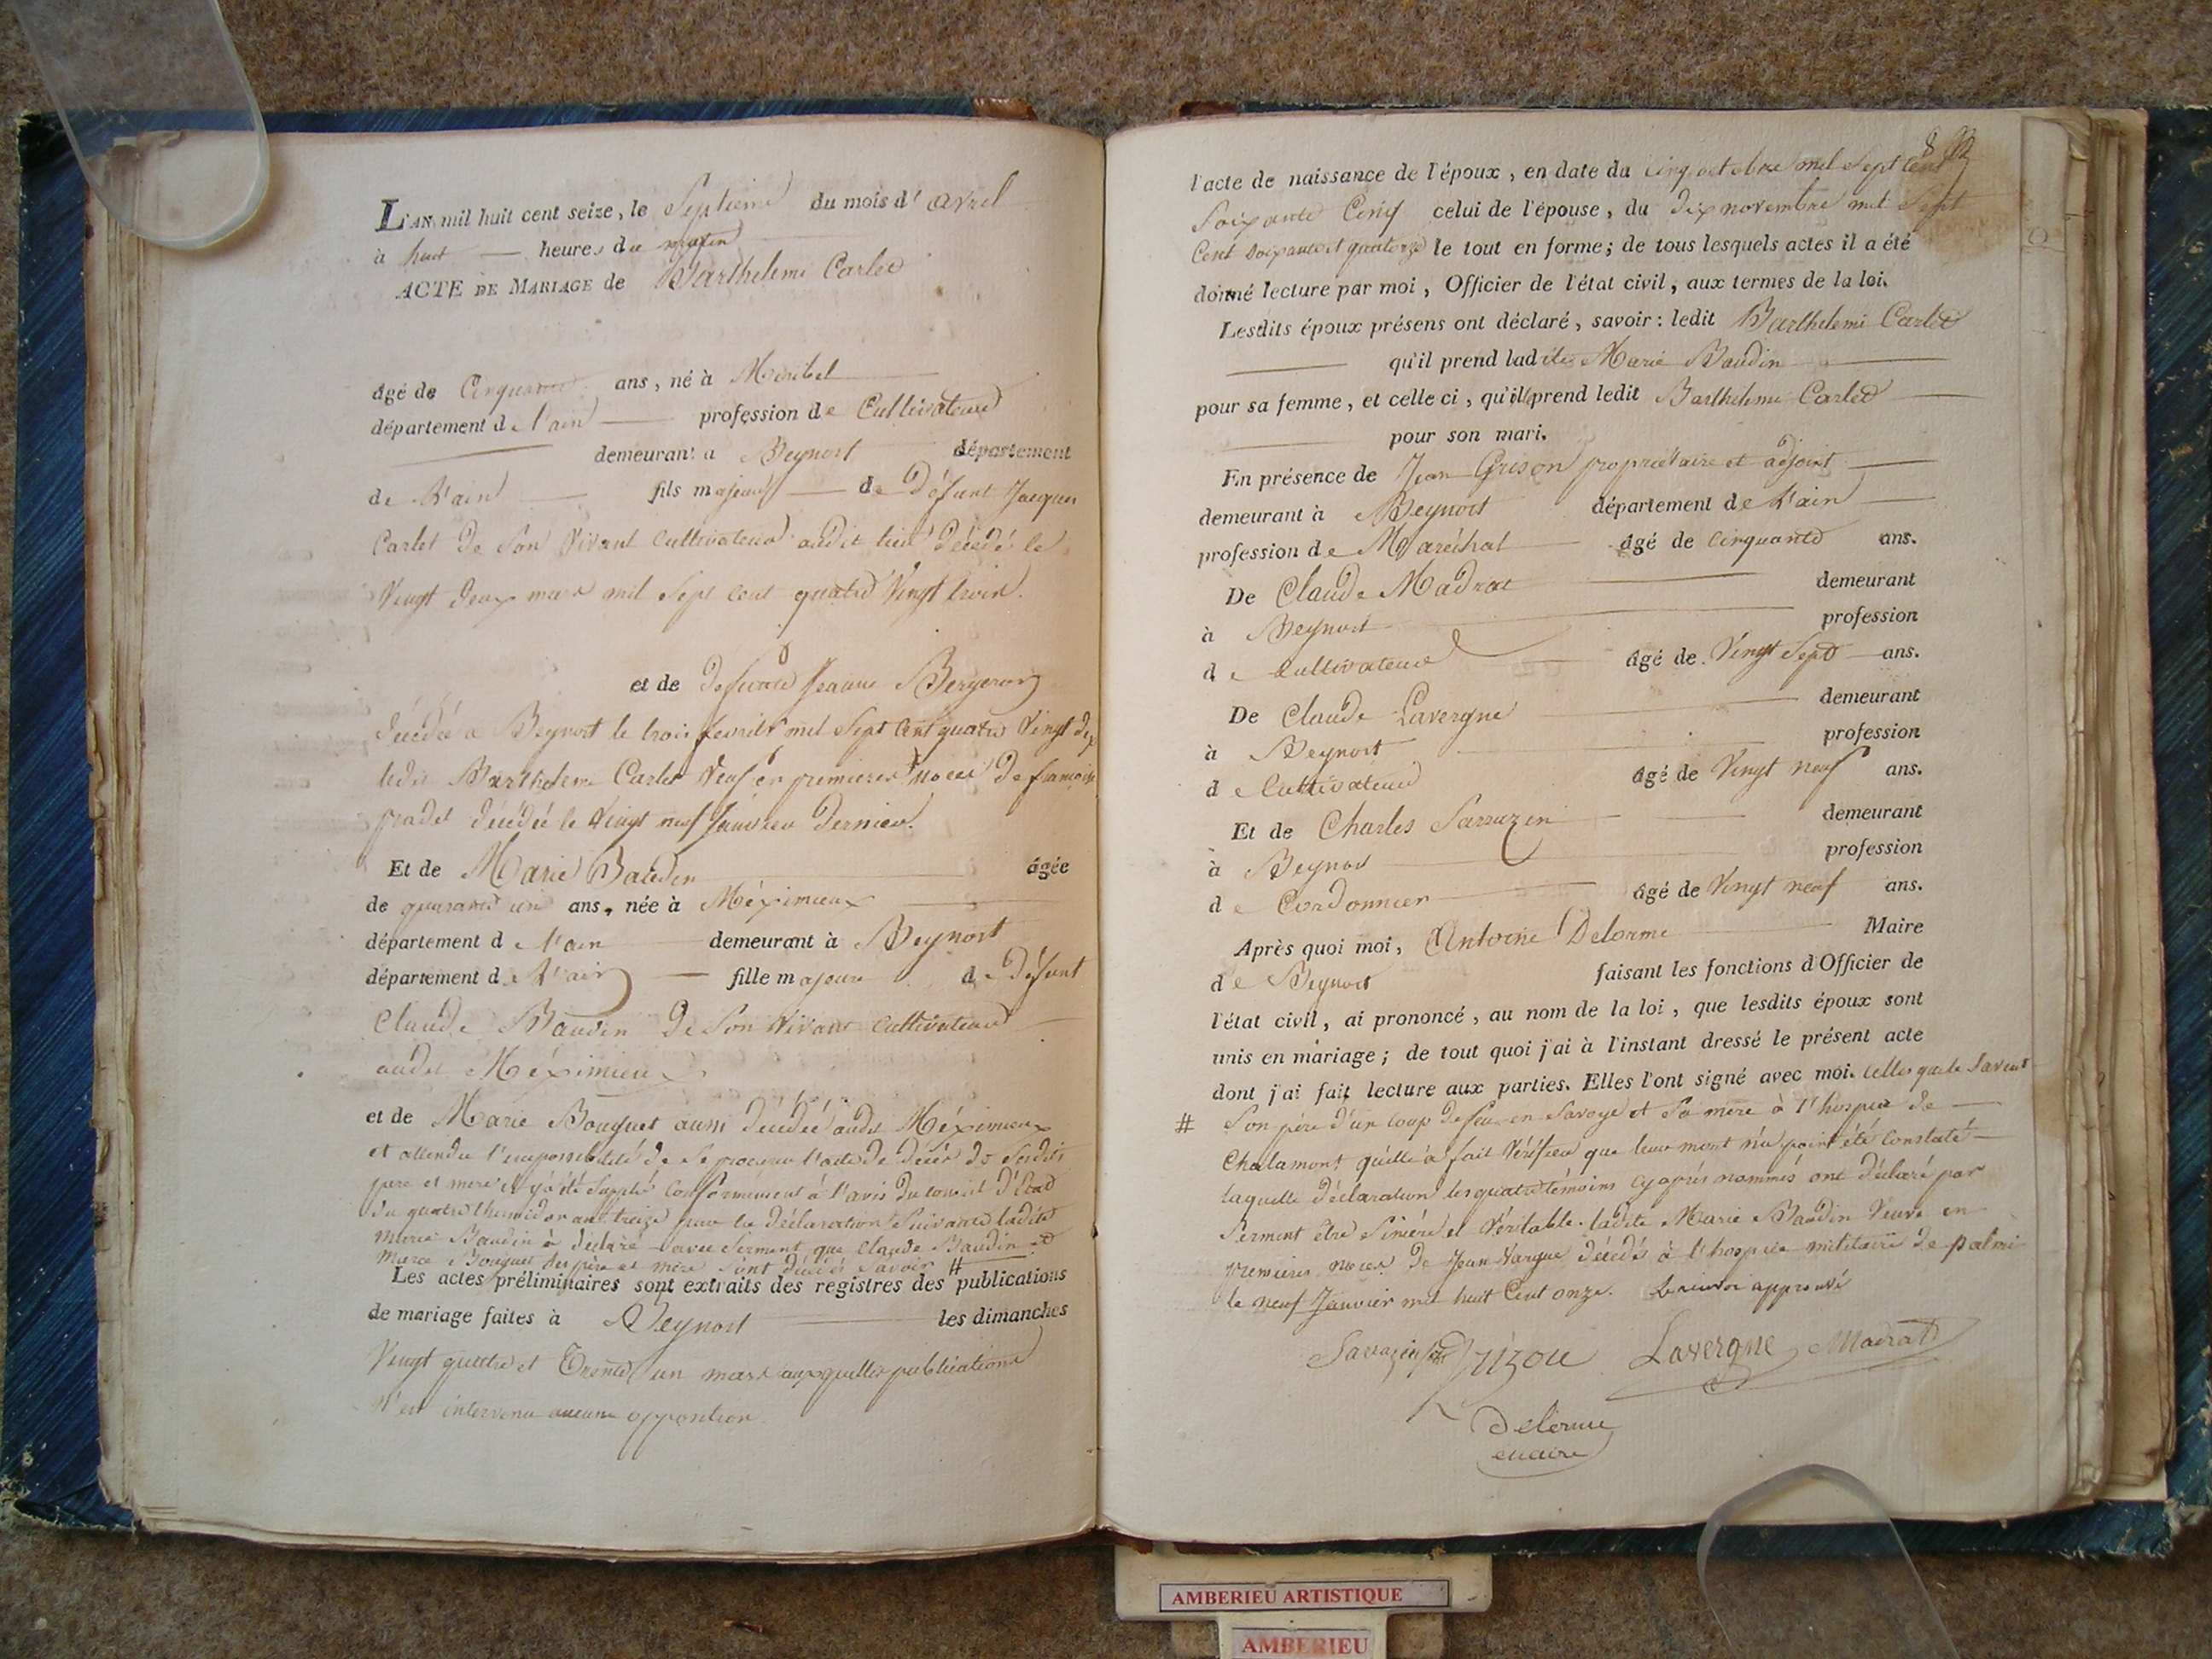 L'AN mil huit cent seize, le Septieme du mois d'avril
à huit heures du matin
ACTE DE MARIAGE de Barthelemi Carlet
âgé de Cinquante ans, né à Miribel
département de l'ain profession de Cultivateur
demeurant a Beynost département
de L'ain fils majeur de Défunt Jacques
Carlet de Son Vivant Cultivateur audit lieu décédé le
Vingt deux mars mil Sept Cent quatre Vingt trois.
et de defunte Jeanne Bergeron
décédée a Beynost le trois fevrier mil Sept Cent quatre Vingt dix
ledit Barthelemi Carlet Veuf en premieres noces de francoise
pradel décédée le Vingt neuf Janvier dernier.
Et de Marie Baudin âgée
de quarante un ans, née à Méximieux
département de l'ain demeurant à Beynost
département de L'ain fille majeure de Défunt
Claude Baudin de Son Vivant Cultivateur
audit Méximieux
et de Marie Bouquet aussi décédée audit Méximieux
et attendu l'impossibilité de Se procurer l'acte de décès de Sesdits
pere et mere il y a été Supplée Conformément à l'avis du Conseil d'État
du quatre thermidor an treize par la déclaration Suivante ladite
Marie Baudin à déclaré avec Serment que Claude Baudin et
Marie Bouquet Ses père et mère Sont décédés Savoir #
Les actes préliminaires sont extraits des registres des publications
de mariage faites à Beynost les dimanches
Vingt quatre et Trente un mars auxquelles publications
n'est intervenu aucune opposition
8
l'acte de naissance de l'époux, en date du cinq octobre mil Sept Cent
Soixante Cinq celui de l'épouse, du dix novembre mil Sept
Cent Soixante et quatorze le tout en forme; de tous lesquels actes il a été
donné lecture par moi, Officier de l'état civil, aux termes de la loi.
Lesdits époux présens ont déclaré, savoir: ledit Barthelemi Carlet
qu'il prend ladite Marie Baudin
pour sa femme, et celle ci, qu'elle prend ledit Barthelemi Carlet
pour son mari.
En présence de Jean Grison propriétaire et adjoint
demeurant à Beynost département de L'ain
profession de Maréchal âgé de cinquante ans.
De Claude Madrat demeurant
à Beynost profession
de Cultivateur âgé de Vingt Sept ans.
De Claude Lavergne demeurant
à Beynost profession
de Cultivateur âgé de Vingt neuf ans.
Et de Charles Sarrazin demeurant
à Beynost profession
de Cordonnier âgé de Vingt neuf ans.
Après quoi moi, Antoine Delorme Maire
de Beynost faisant les fonctions d'Officier de
l'état civil, ai prononcé, au nom de la loi, que lesdits époux sont
unis en mariage; de tout quoi j'ai à l'instant dressé le présent acte
dont j'ai fait lecture aux parties. Elles l'ont signé avec moi. celles qui le Savent
# Son père d'un Coup de feu en Savoye et Sa mère à l'hospice de
Chalamont qu'elle à fait Vérifier que leur mort n'a point été Constaté
laquelle déclaration les quatre témoins cy après nommés ont déclaré par
Serment être Sincère et Véritable. ladite Marie Baudin Veuve en
premieres noces de Jean Vargue décédé à l'hospice militaire de palmi
le neuf Janvier mil huit Cent onze. Le renvoi approuvé
Savazin Grizou Lavergne Madrat
Delorme
maire
AMBERIEU ARTISTIQUE
AMBERIEU